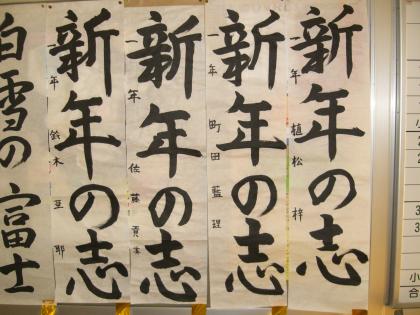 新年の志
一年 植松 梓
新年の志
一年 町田 藍理
新年の志
一年 佐藤
新年の志
一年 鈴木 亜耶
白雪の富士
小
合